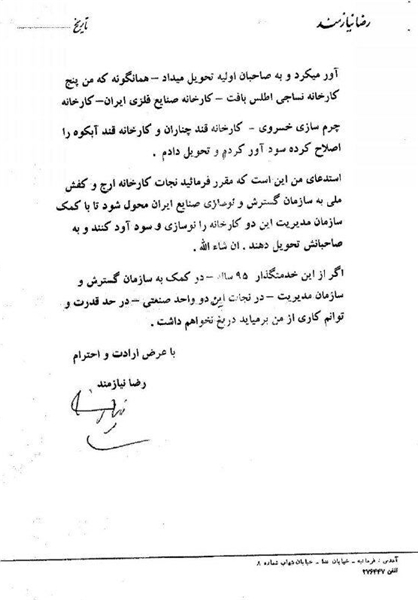 رضا نیازمند
تاریخ
آور میکرد و به صاحبان اولیه تحویل میداد – همانگونه که من پنج
کارخانه نساجی اطلس بافت – کارخانه صنایع فلزی ایران – کارخانه
چرم سازی خسروی – کارخانه قند چناران و کارخانه قند آبکوه را
اصلاح کرده سود آور کردم و تحویل دادم .
استدعای من این است که مقرر فرمائید نجات کارخانه ارج و کفش
ملی به سازمان گسترش و نوسازی صنایع ایران محول شود تا با کمک
سازمان مدیریت این دو کارخانه را نوسازی و سود آود کنند و به
صاحبانش تحویل دهند . ان شاء الله .
اگر از این خدمتگذار ۹۵ ساله – در کمک به سازمان گسترش و
سازمان مدیریت – در نجات این دو واحد صنعتی – در حد قدرت و
توانم کاری از من برمیاید دریغ نخواهم داشت .
با عرض ارادت و احترام
رضا نیازمند
خیابان شهاب شماره ۸
تلفن ۲۷۶۴۴۷